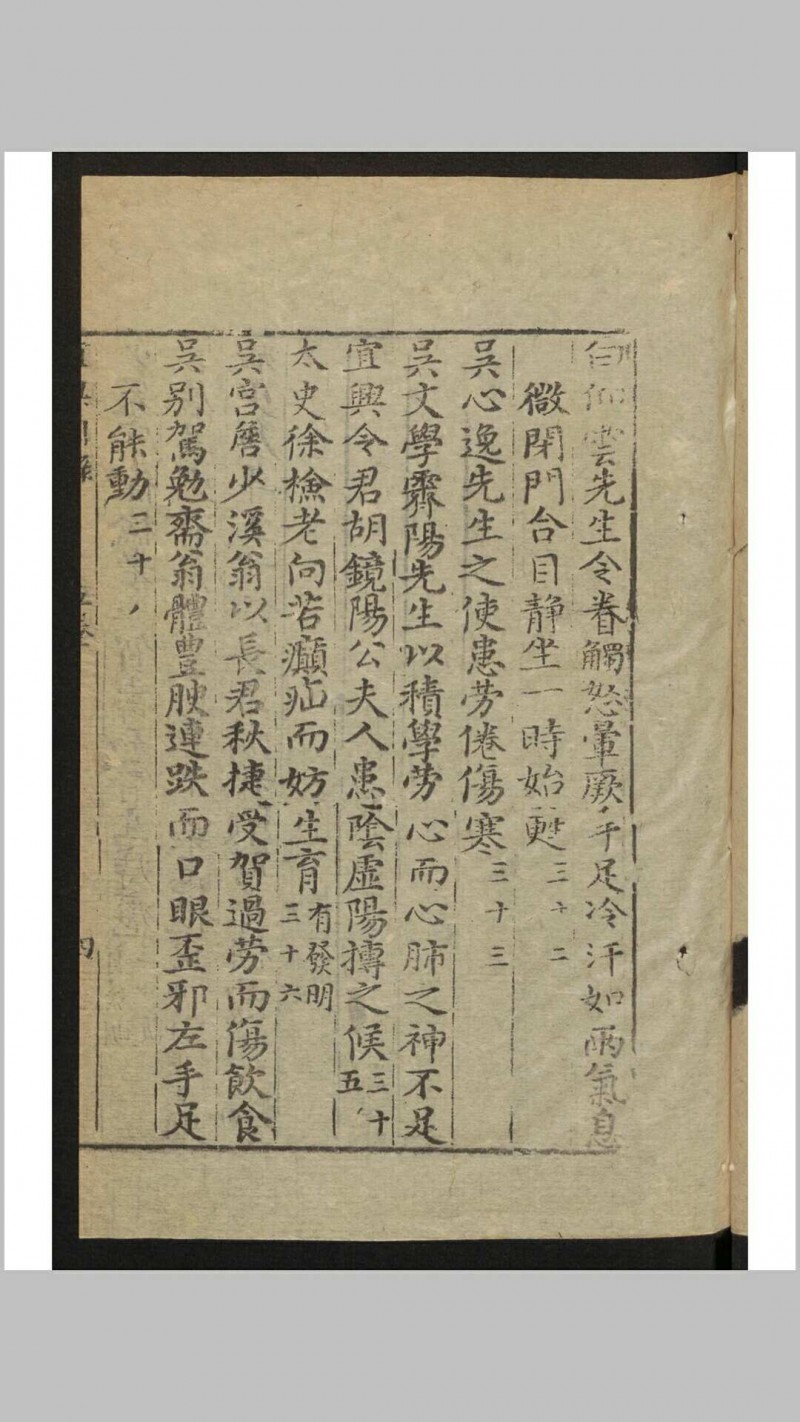 白仰雲先生令眷觸怒暈厥手足冷汗如雨氣息
微閉門合目靜坐一時始甦三十二
吳心逸先生之使患勞倦傷寒三十三
吳文學霽陽先生以積學勞心而心肺之神不足
宜興令君胡鏡陽公夫人患陰虛陽搏之候三十五
太史徐檢老向苦癲疝而妨生育有發明三十六
吳宮詹少溪翁以長君秋捷受賀過勞而傷飲食
吳別駕勉齋翁體豐腴連跌而口眼歪邪左手足
不能動三十八
五卷
四